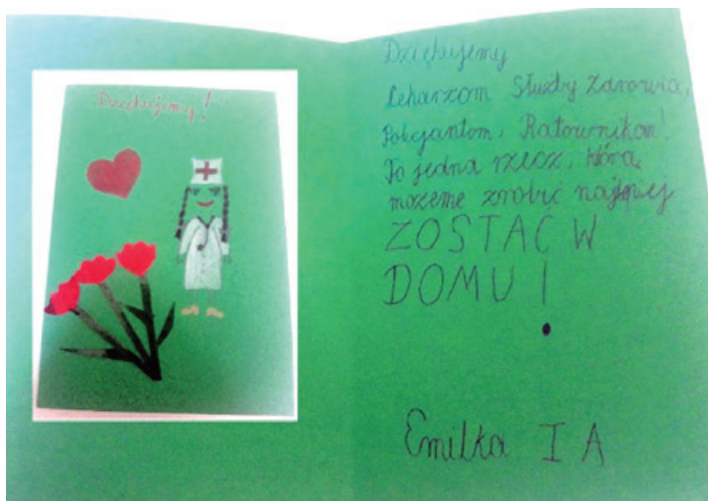 Dziękujemy!
Dziękujemy
Lekarzom Służby Zdrowia,
Policjantom, Ratownikom!
To jedna rzecz, którą
możeme zrobić najlepiej
ZOSTAĆ W
DOMU!
Emilka I A